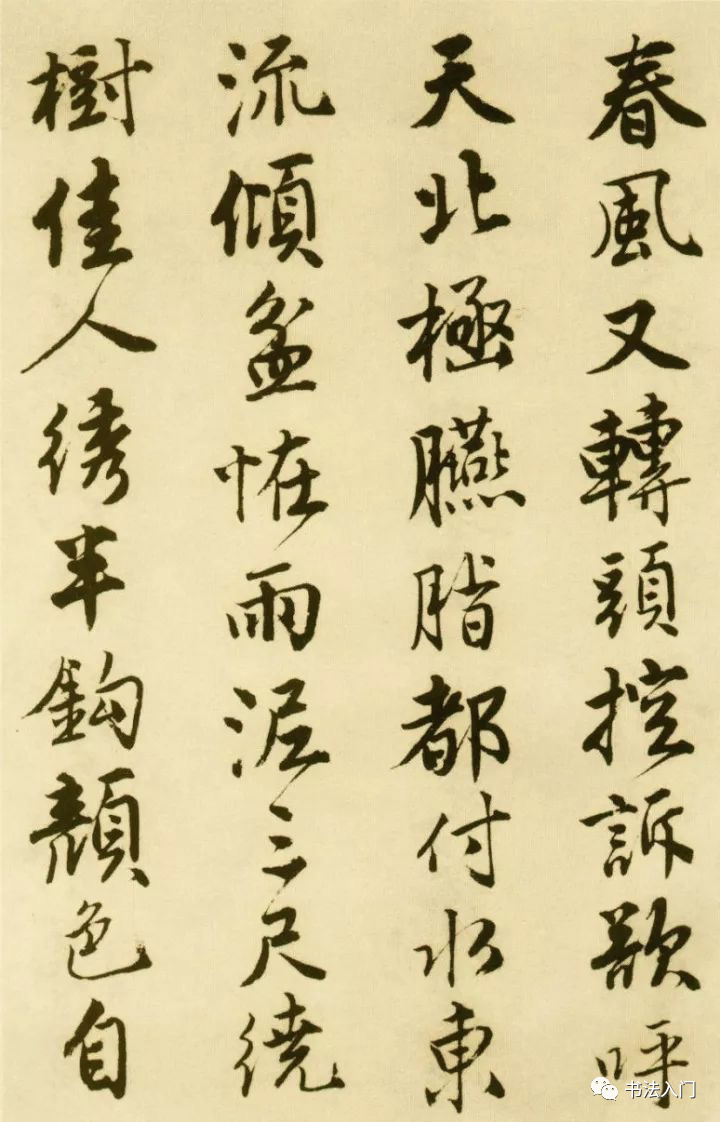 春風又轉頭控訴欲呼
天北極臙脂都付水東
流傾盆恠雨泥三尺繞
樹佳人綉半鈎顏色自
书法入门